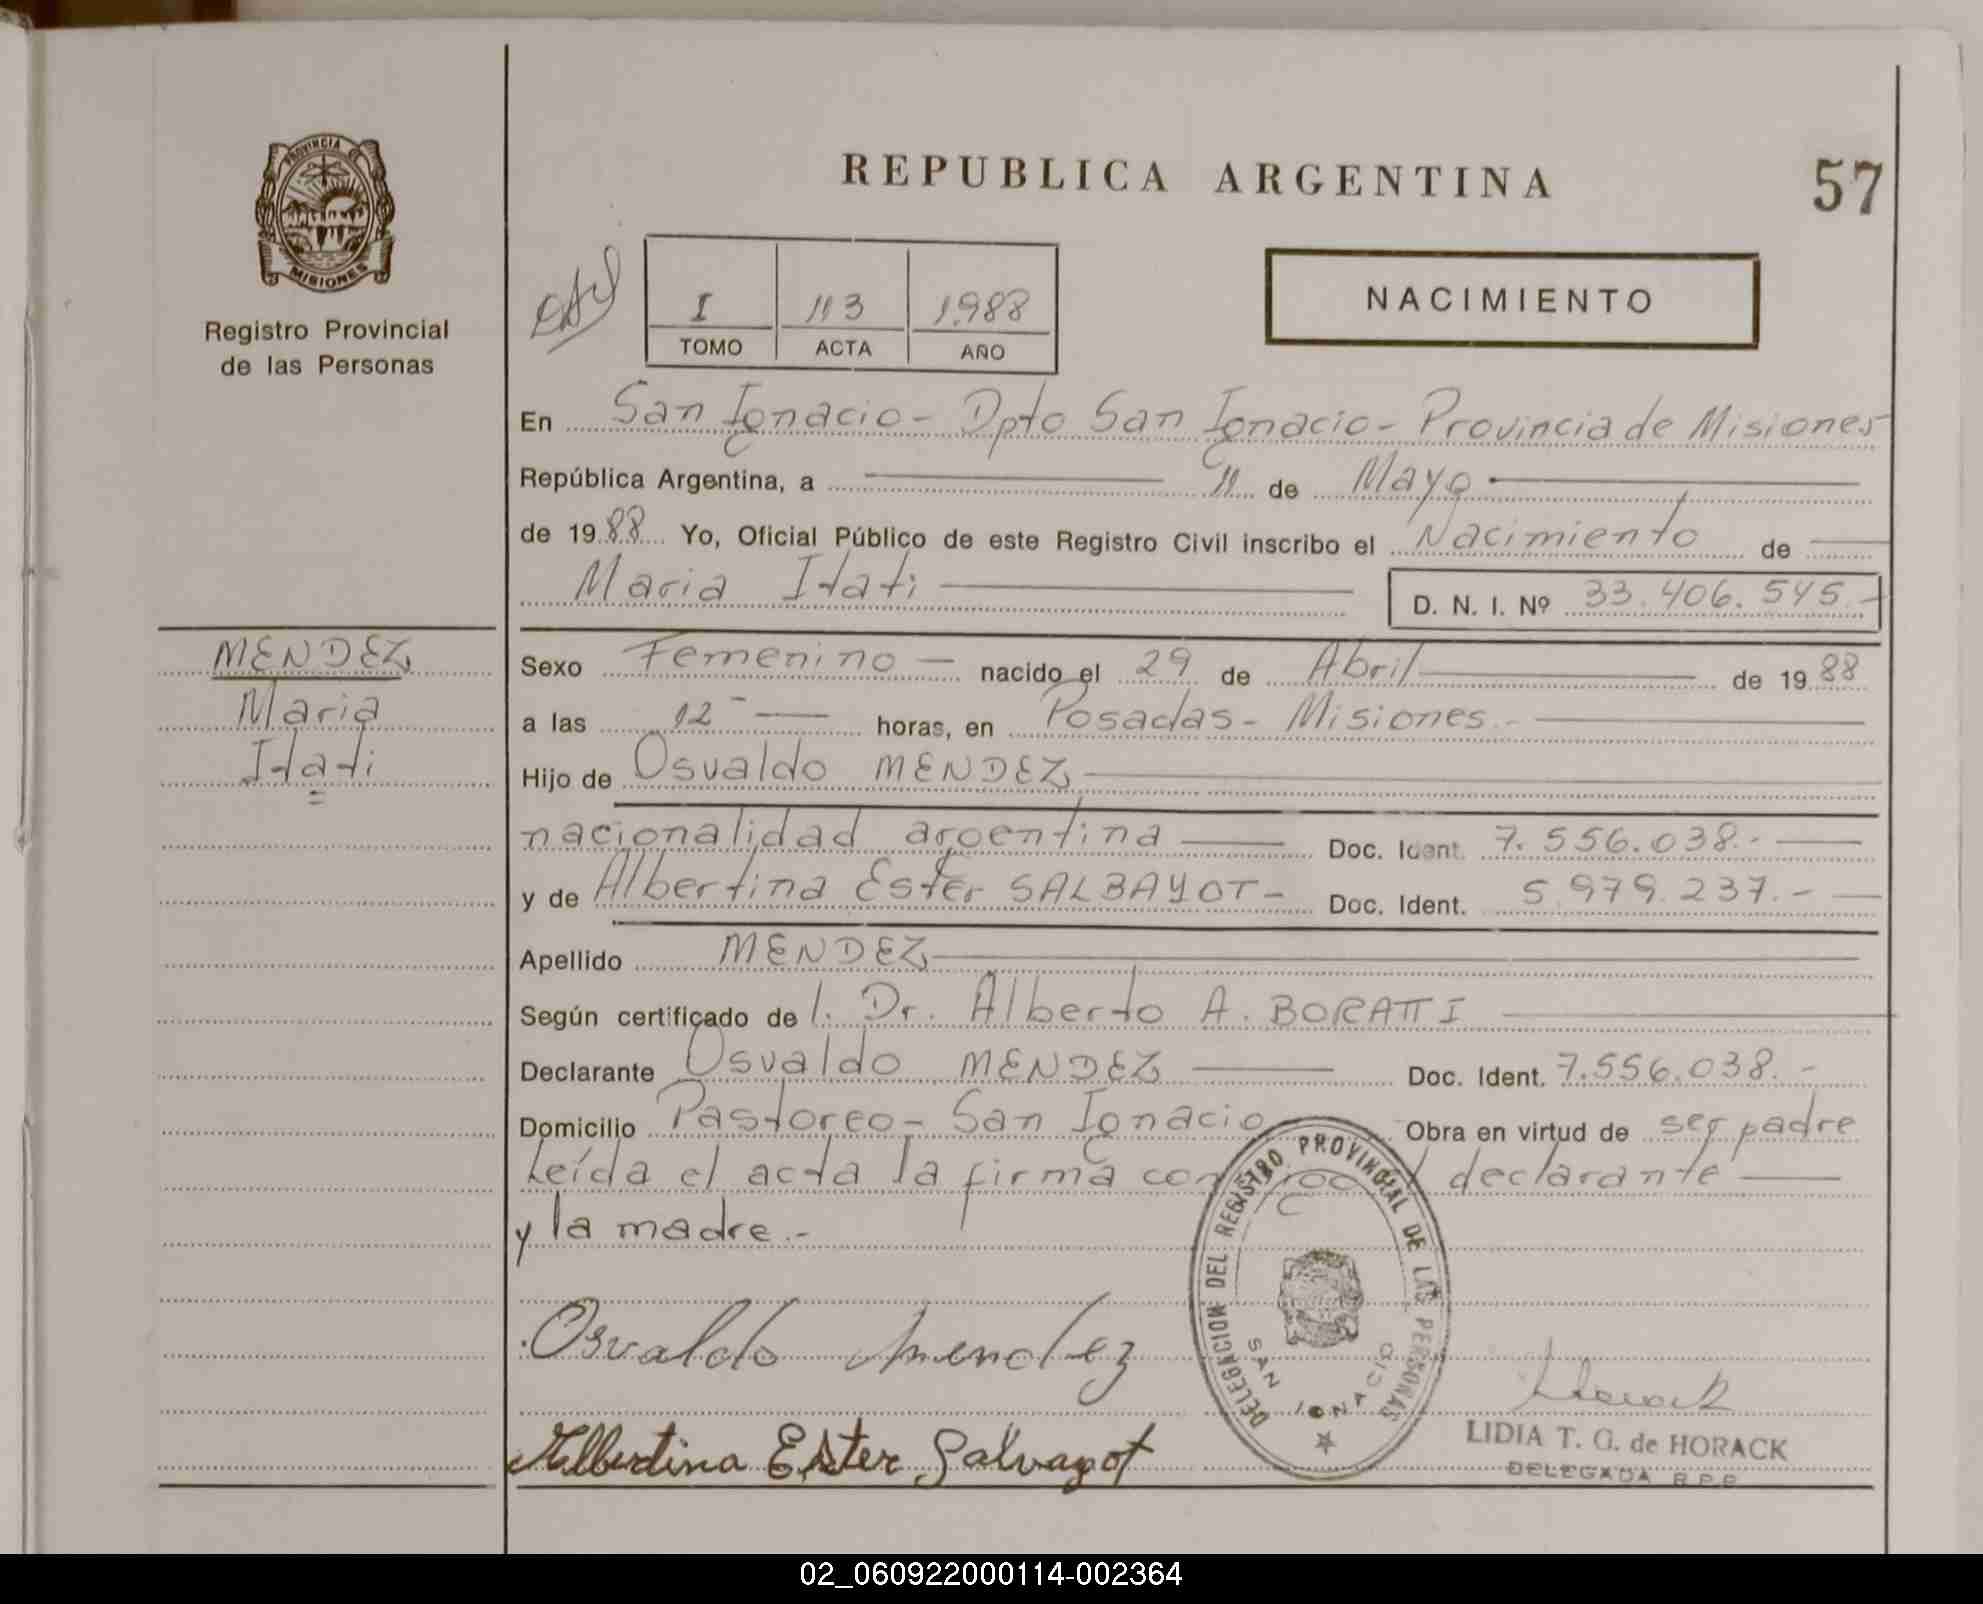 REPUBLICA ARGENTINA
57
PROVINCIA DE
MISIONES
Registro Provincial
de las Personas
I 113 1.988
TOMO ACTA AÑO
NACIMIENTO
En San Ignacio - Dpto San Ignacio - Provincia de Misiones
República Argentina, a 11 de Mayo
de 1988 Yo, Oficial Público de este Registro Civil inscribo el Nacimiento de
Maria Itati D. N. I. Nº 33.406.545.-
MENDEZ
Maria
Itati
Sexo Femenino - nacido el 29 de Abril de 1988
a las 12 - horas, en Posadas - Misiones.-
Hijo de Osvaldo MENDEZ
nacionalidad argentina Doc. Ident. 7.556.038.-
y de Albertina Ester SALBAYOT - Doc. Ident. 5.979.237.-
Apellido MENDEZ
Según certificado de l. Dr. Alberto A. BORATTI
Declarante Osvaldo MENDEZ Doc. Ident. 7.556.038.-
Domicilio Pastoreo - San Ignacio Obra en virtud de ser padre
Leída el acta la firma declarante
y la madre.-
DELEGACION DEL REGISTRO PROVINCIAL DE LAS PERSONAS
SAN IGNACIO
Osvaldo Mendez
Albertina Ester Salvayot
Horack
LIDIA T. G. de HORACK
DELEGADA R.P.P.
02_060922000114-002364